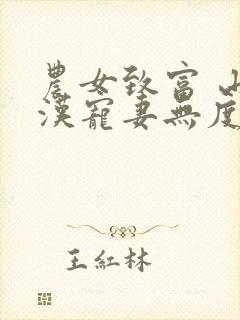 農女致富 山
漢寵妻無度
王紅林